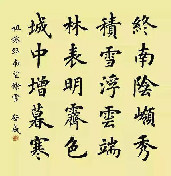 終南陰嶺秀
積雪浮雲端
林表明霽色
城中增暮寒
祖詠終南望餘雪